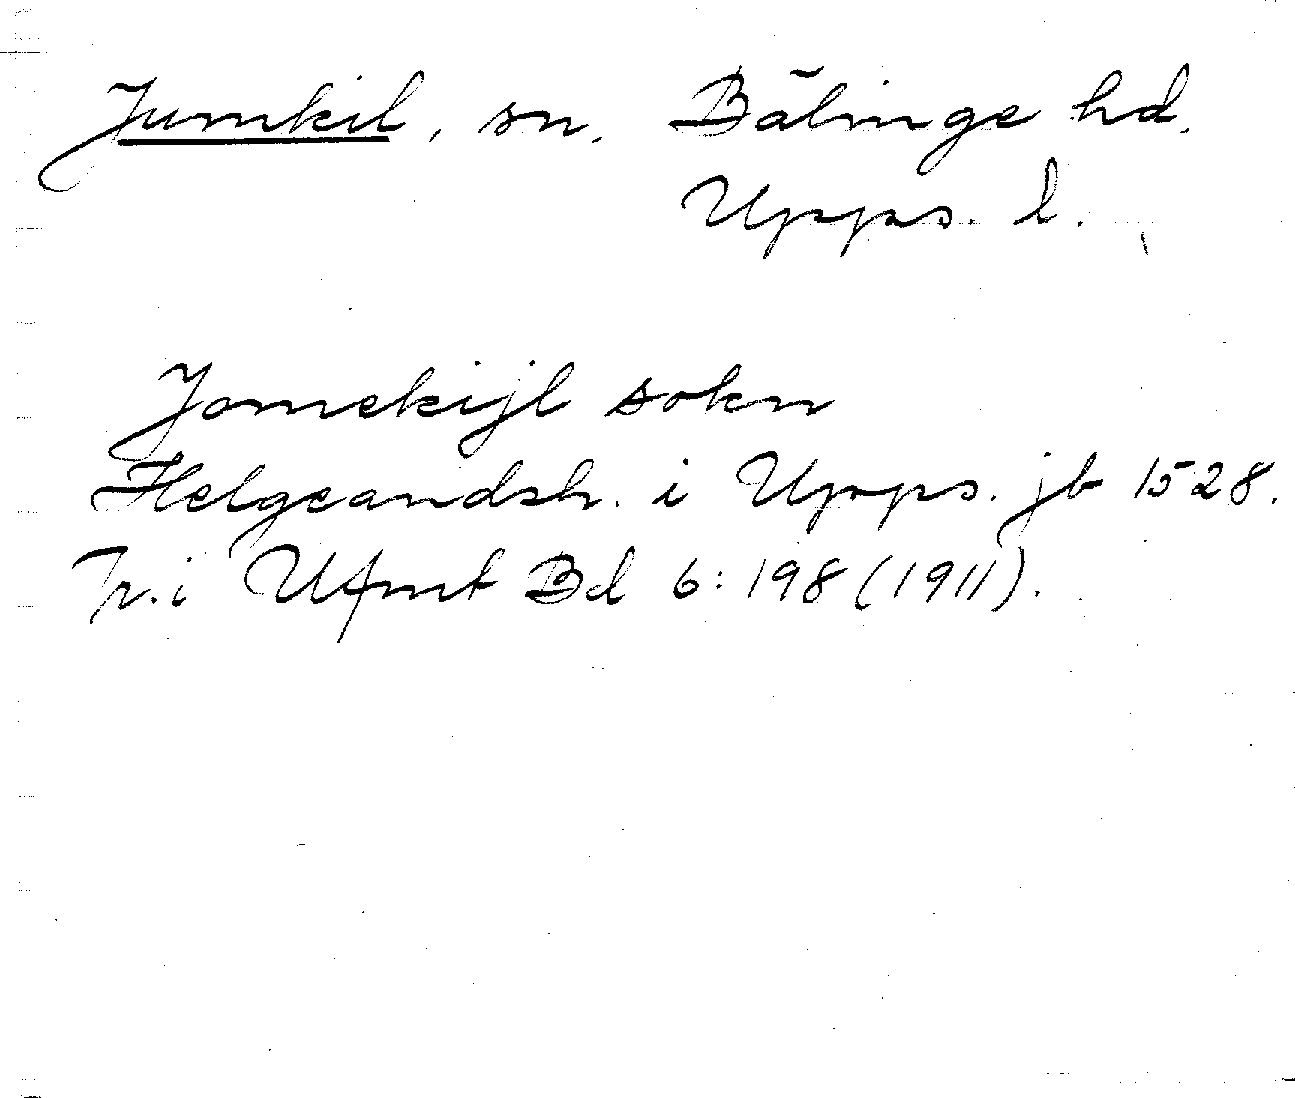 Jumkil, sn. Bälinge hd.
Upps. l.
Jomekijl sokn
Helgeandsh. i Upps. jb 1528.
Tr. i Ufmt Bd 6:198 (1911).